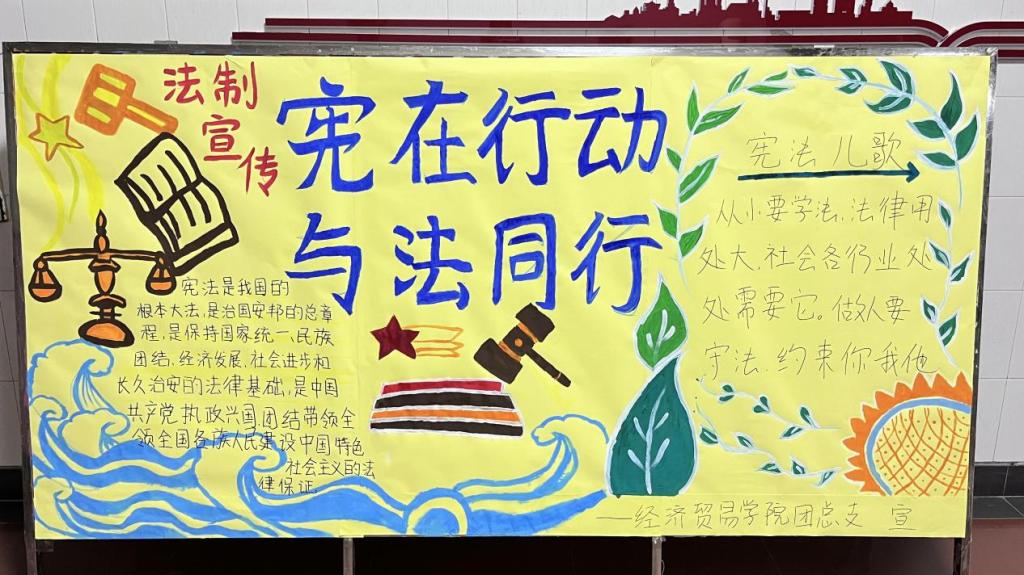 法制
宣
传
宪在行动
与法同行
宪法是我国的
根本大法,是治国安邦的总章
程,是保持国家统一、民族
团结,经济发展,社会进步和
长久治安的法律基础,是中国
共产党执政兴国团结带领全
领全国各族人民建设中国特色
社会主义的法
律保证.
宪法儿歌
从小要学法.法律用
处大.社会各行业处
处需要它。做人要
守法.约束你我他
——经济贸易学院团总支 宣